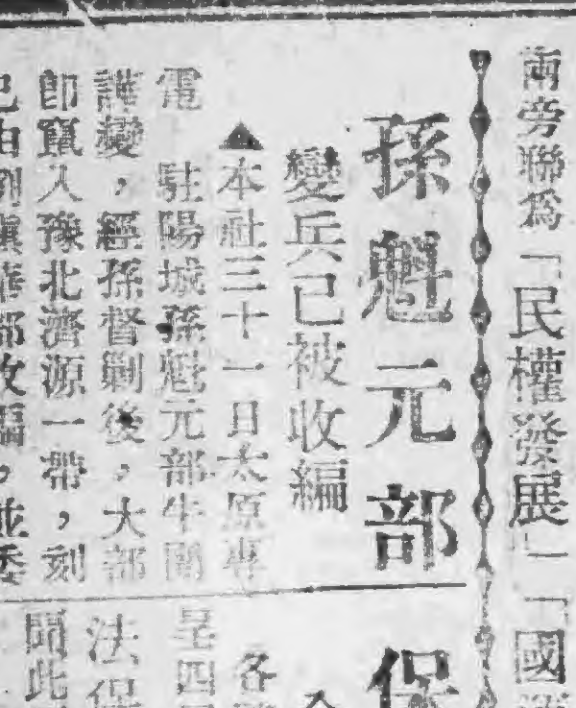 兩旁聯爲「民權發展」「國
孫魁元部
變兵已被收編
▲本社三十一日太原專
電　駐陽城孫魁元部牛團
譁變，經孫督剿後，大部
卽竄入豫北濟源一帶，刻
已由劉鎭華部收編，並委
保
各
星四
法保
聞此